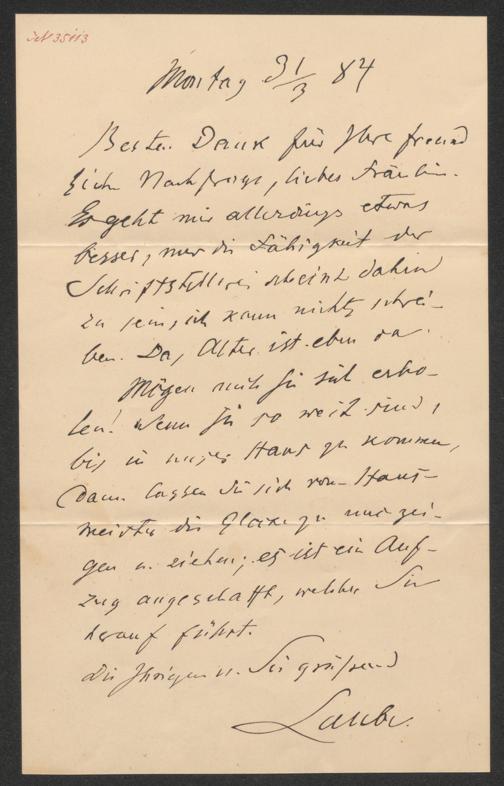 Montag 31/3 84
Besten Dank für Ihre freund
liche Nachfrage, liebes Fräulein.
Es geht mir allerdings etwas
besser, nur die Fähigkeit der
Schriftstellerei scheint dahin
zu sein, ich kann nichts schrei-
ben. Das Alter ist eben da.
Mögen auch Sie sich erho-
len! Wenn Sie so weit sind,
bis in unser Haus zu kommen,
dann lassen Sie sich vom Haus-
meister die Glocke zu uns zei-
gen u. ziehen; es ist ein Auf-
zug angeschafft, welcher Sie
herauf führt.
Die Ihrigen u. Sie grüßend
Laube.